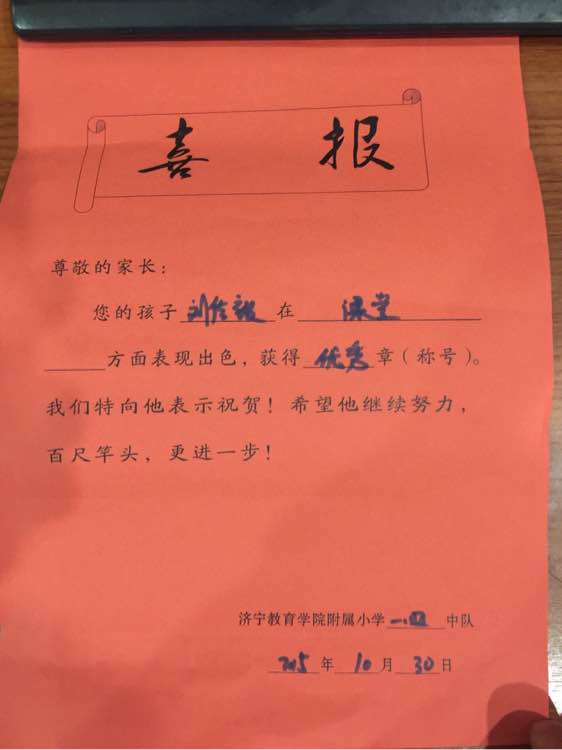 喜报
尊敬的家长：
您的孩子刘在课堂
方面表现出色，获得优秀章（称号）。
我们特向他表示祝贺！希望他继续努力，
百尺竿头，更进一步！
济宁教育学院附属小学一四中队
2015年10月30日